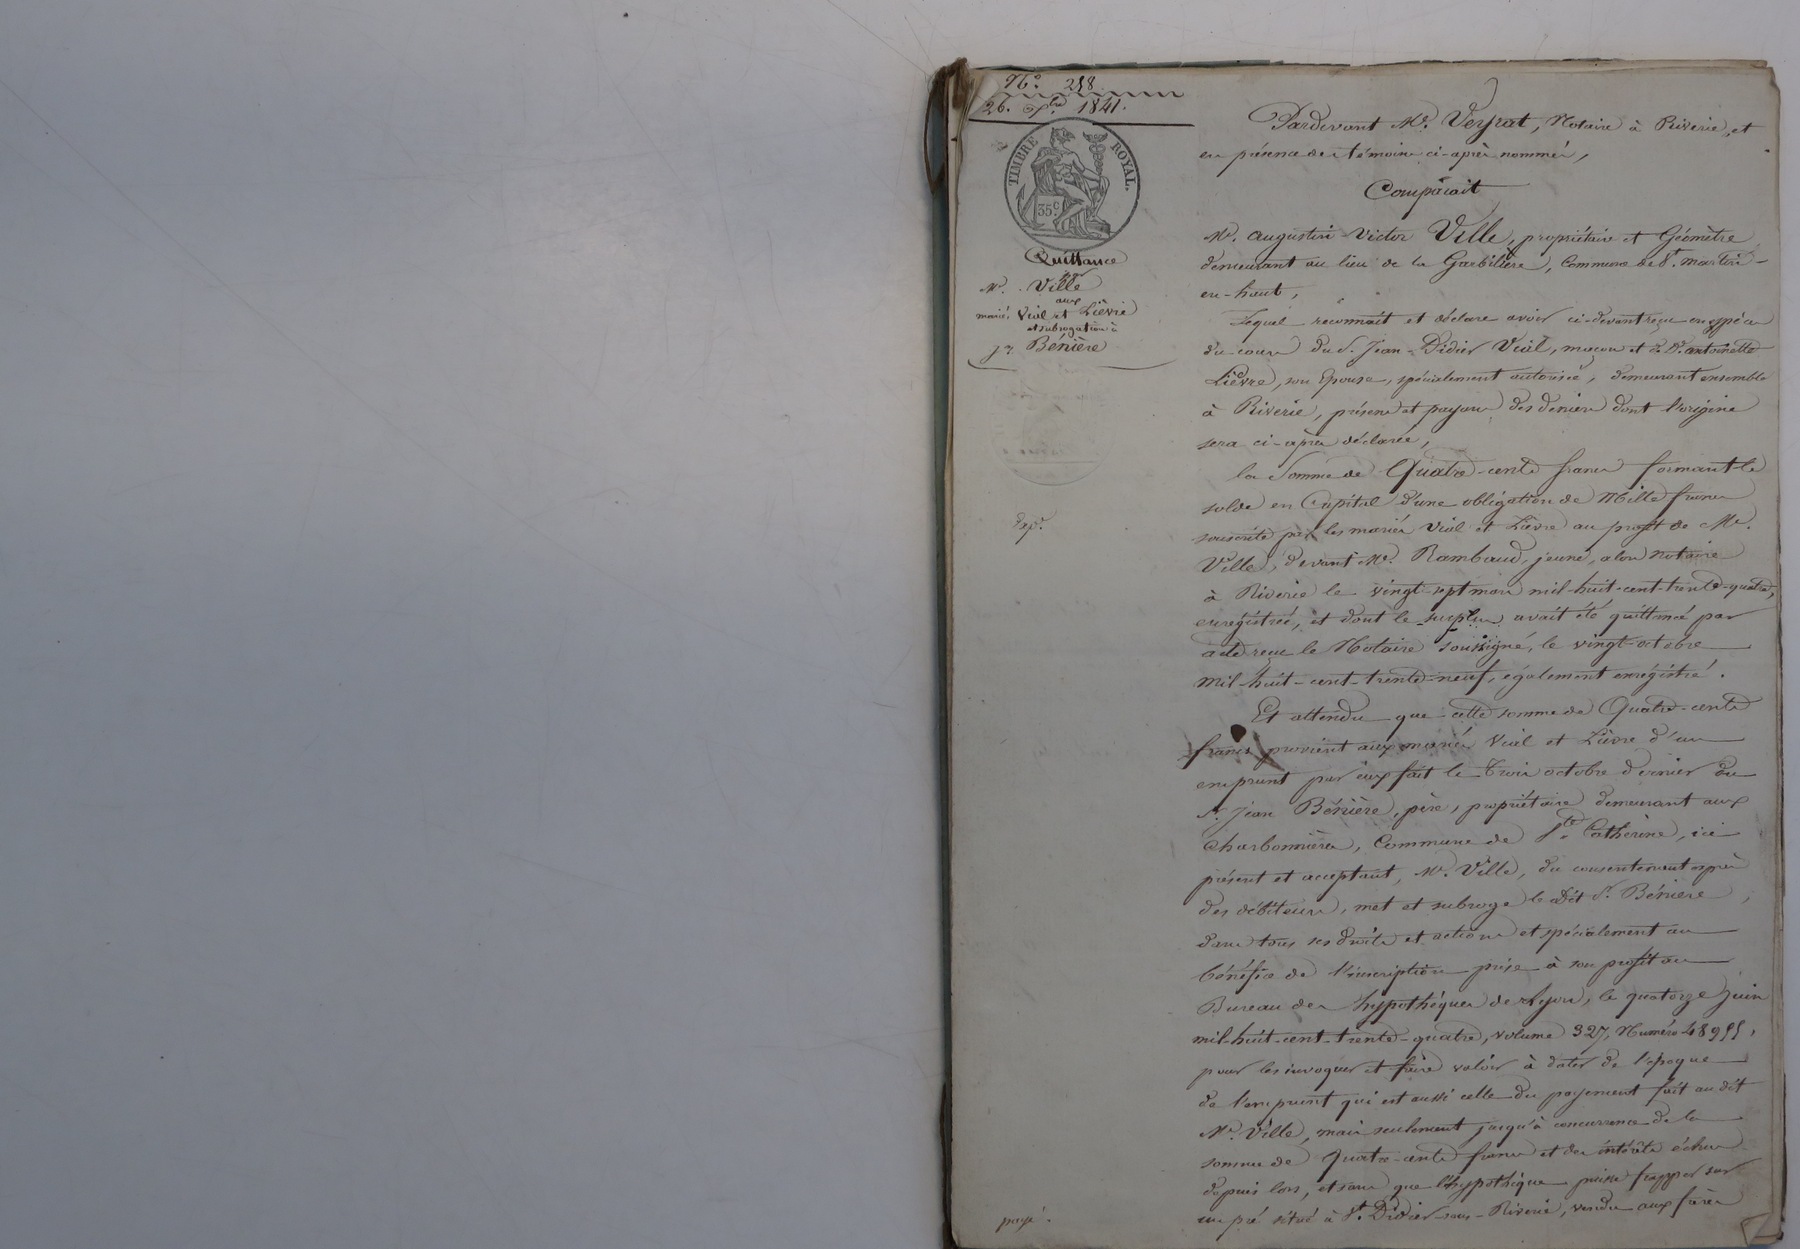 N.º 218.
26. 7.bre 1841.
TIMBRE ROYAL.
35 c.
Quittance
par
Mr. Ville
aux
mariés Vial et Lièvre
et subrogation à
Jn. Bénière
Exp.on
payé.
Pardevant Me. Veyrat, Notaire à Riverie, et
en présence des témoins ci-après nommés,
Comparait
Mr. Augustin-Victor Ville, propriétaire et Géomètre
demeurant au lieu de la Garbilière, Commune de St. Martin-
en-haut,
Lequel reconnait et déclare avoir ci-devant reçu en espèces
du cours du S. Jean-Didier Vial, maçon et de De. antoinette
Lièvre, son Epouse, spécialement autorisée, demeurant ensemble
à Riverie, présens et payans des deniers dont l'origine
sera ci-après déclarée,
la Somme de Quatre-cents francs formant le
solde en Capital d'une obligation de Mille francs
souscrite par les mariés Vial et Lièvre au profit de Mr.
Ville, devant Me. Rambaud, jeune, alors notaire
à Riverie le vingt-sept mars mil-huit-cent-trente-quatre,
enrégistrée, et dont le surplus avait été quittancé par
acte reçu le Notaire soussigné, le vingt octobre
mil-huit-cent-trente-neuf, également enrégistré.
Et attendu que cette somme de Quatre-cents
francs provient aux mariés Vial et Lièvre d'un
emprunt par eux fait le trois octobre dernier du
S. Jean Bénière, père, propriétaire demeurant aux
Charbonnières, Commune de Ste. Catherine, ici
présent et acceptant, Mr. Ville, du consentement exprès
des débiteurs, met et subroge le dit S. Bénière,
dans tous ses droits et actions et spécialement au
bénéfice de l'inscription prise à son profit au
Bureau des hypothèques de Lyon, le quatorze juin
mil-huit-cent-trente-quatre, volume 327, Numéro 48955,
pour les invoquer et faire valoir à dater de l'époque
de l'emprunt qui est aussi celle du payement fait au dit
Mr. Ville, mais seulement jusqu'à concurrence de la
somme de quatre-cents francs et des intérêts échus
depuis lors, et sans que l'hypothèque puisse frapper sur
un pré situé à St. Didier-sous-Riverie, vendu aux frères